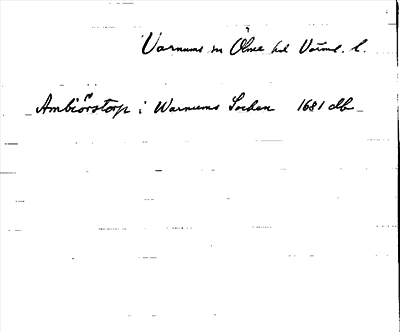 Varnums sn Ölme hd Värml. l.
Ambiörstorp i Warnums Sochen 1681 db